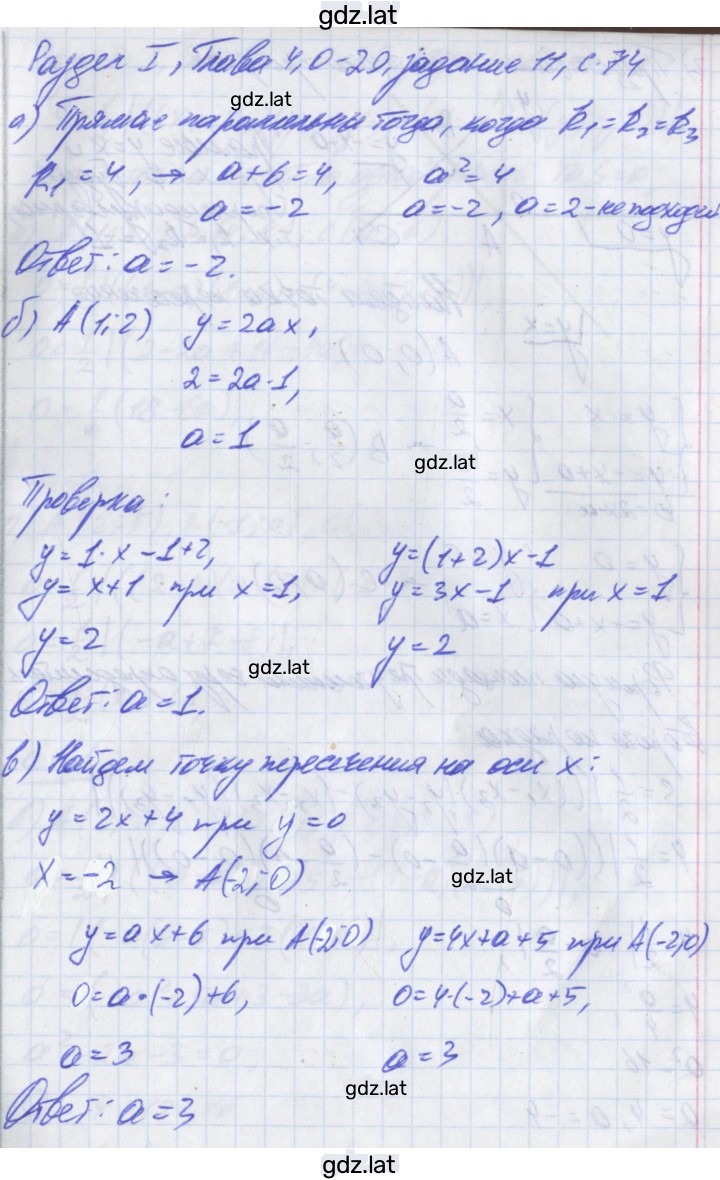 gdz.lat
Раздел I, Глава 4, О-20, задание 11, с. 74
gdz.lat
а) Прямые параллельны тогда, когда k₁=k₂=k₃
k₁=4, → a+6=4, a²=4
a=-2 a=-2, a=2-не подходит
Ответ: a=-2.
б) A(1;2) y=2ax,
2=2a·1,
a=1
gdz.lat
Проверка:
y=1·x-1+2, y=(1+2)x-1
y=x+1 при x=1, y=3x-1 при x=1
y=2 y=2
gdz.lat
Ответ: a=1.
в) Найдем точку пересечения на оси x:
y=2x+4 при y=0
x=-2 → A(-2;0)
gdz.lat
y=ax+6 при A(-2;0) y=4x+a+5 при A(-2;0)
0=a·(-2)+6, 0=4·(-2)+a+5,
a=3 a=3
gdz.lat
Ответ: a=3
gdz.lat